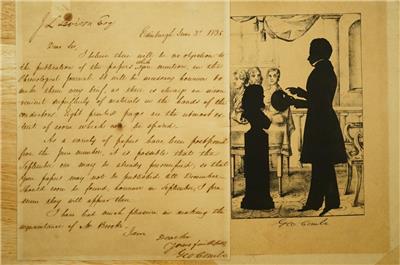 J L Levison Esq
Edinburgh June 3d 1835
Dear Sir,
I believe there will be no objection to
the publication of the papers you mention, in the
which
Phrenological Journal. It will be necessary however to
make them very brief, as there is always an incon-
venient superfluity of materials in the hands of the
conductors. Eight printed pages is the utmost ex-
tent of room which can be spared.
As a variety of papers have been postponed
from the June number, it is possible that the
September one may be already preoccupied, so that
your papers may not be published till December.
Should room be found, however in September, I pre-
sume they will appear then.
I have had much pleasure in making the
acquaintance of Mr
I am
Dear Sir
yours faithfully
Geo Combe
Geo Combe